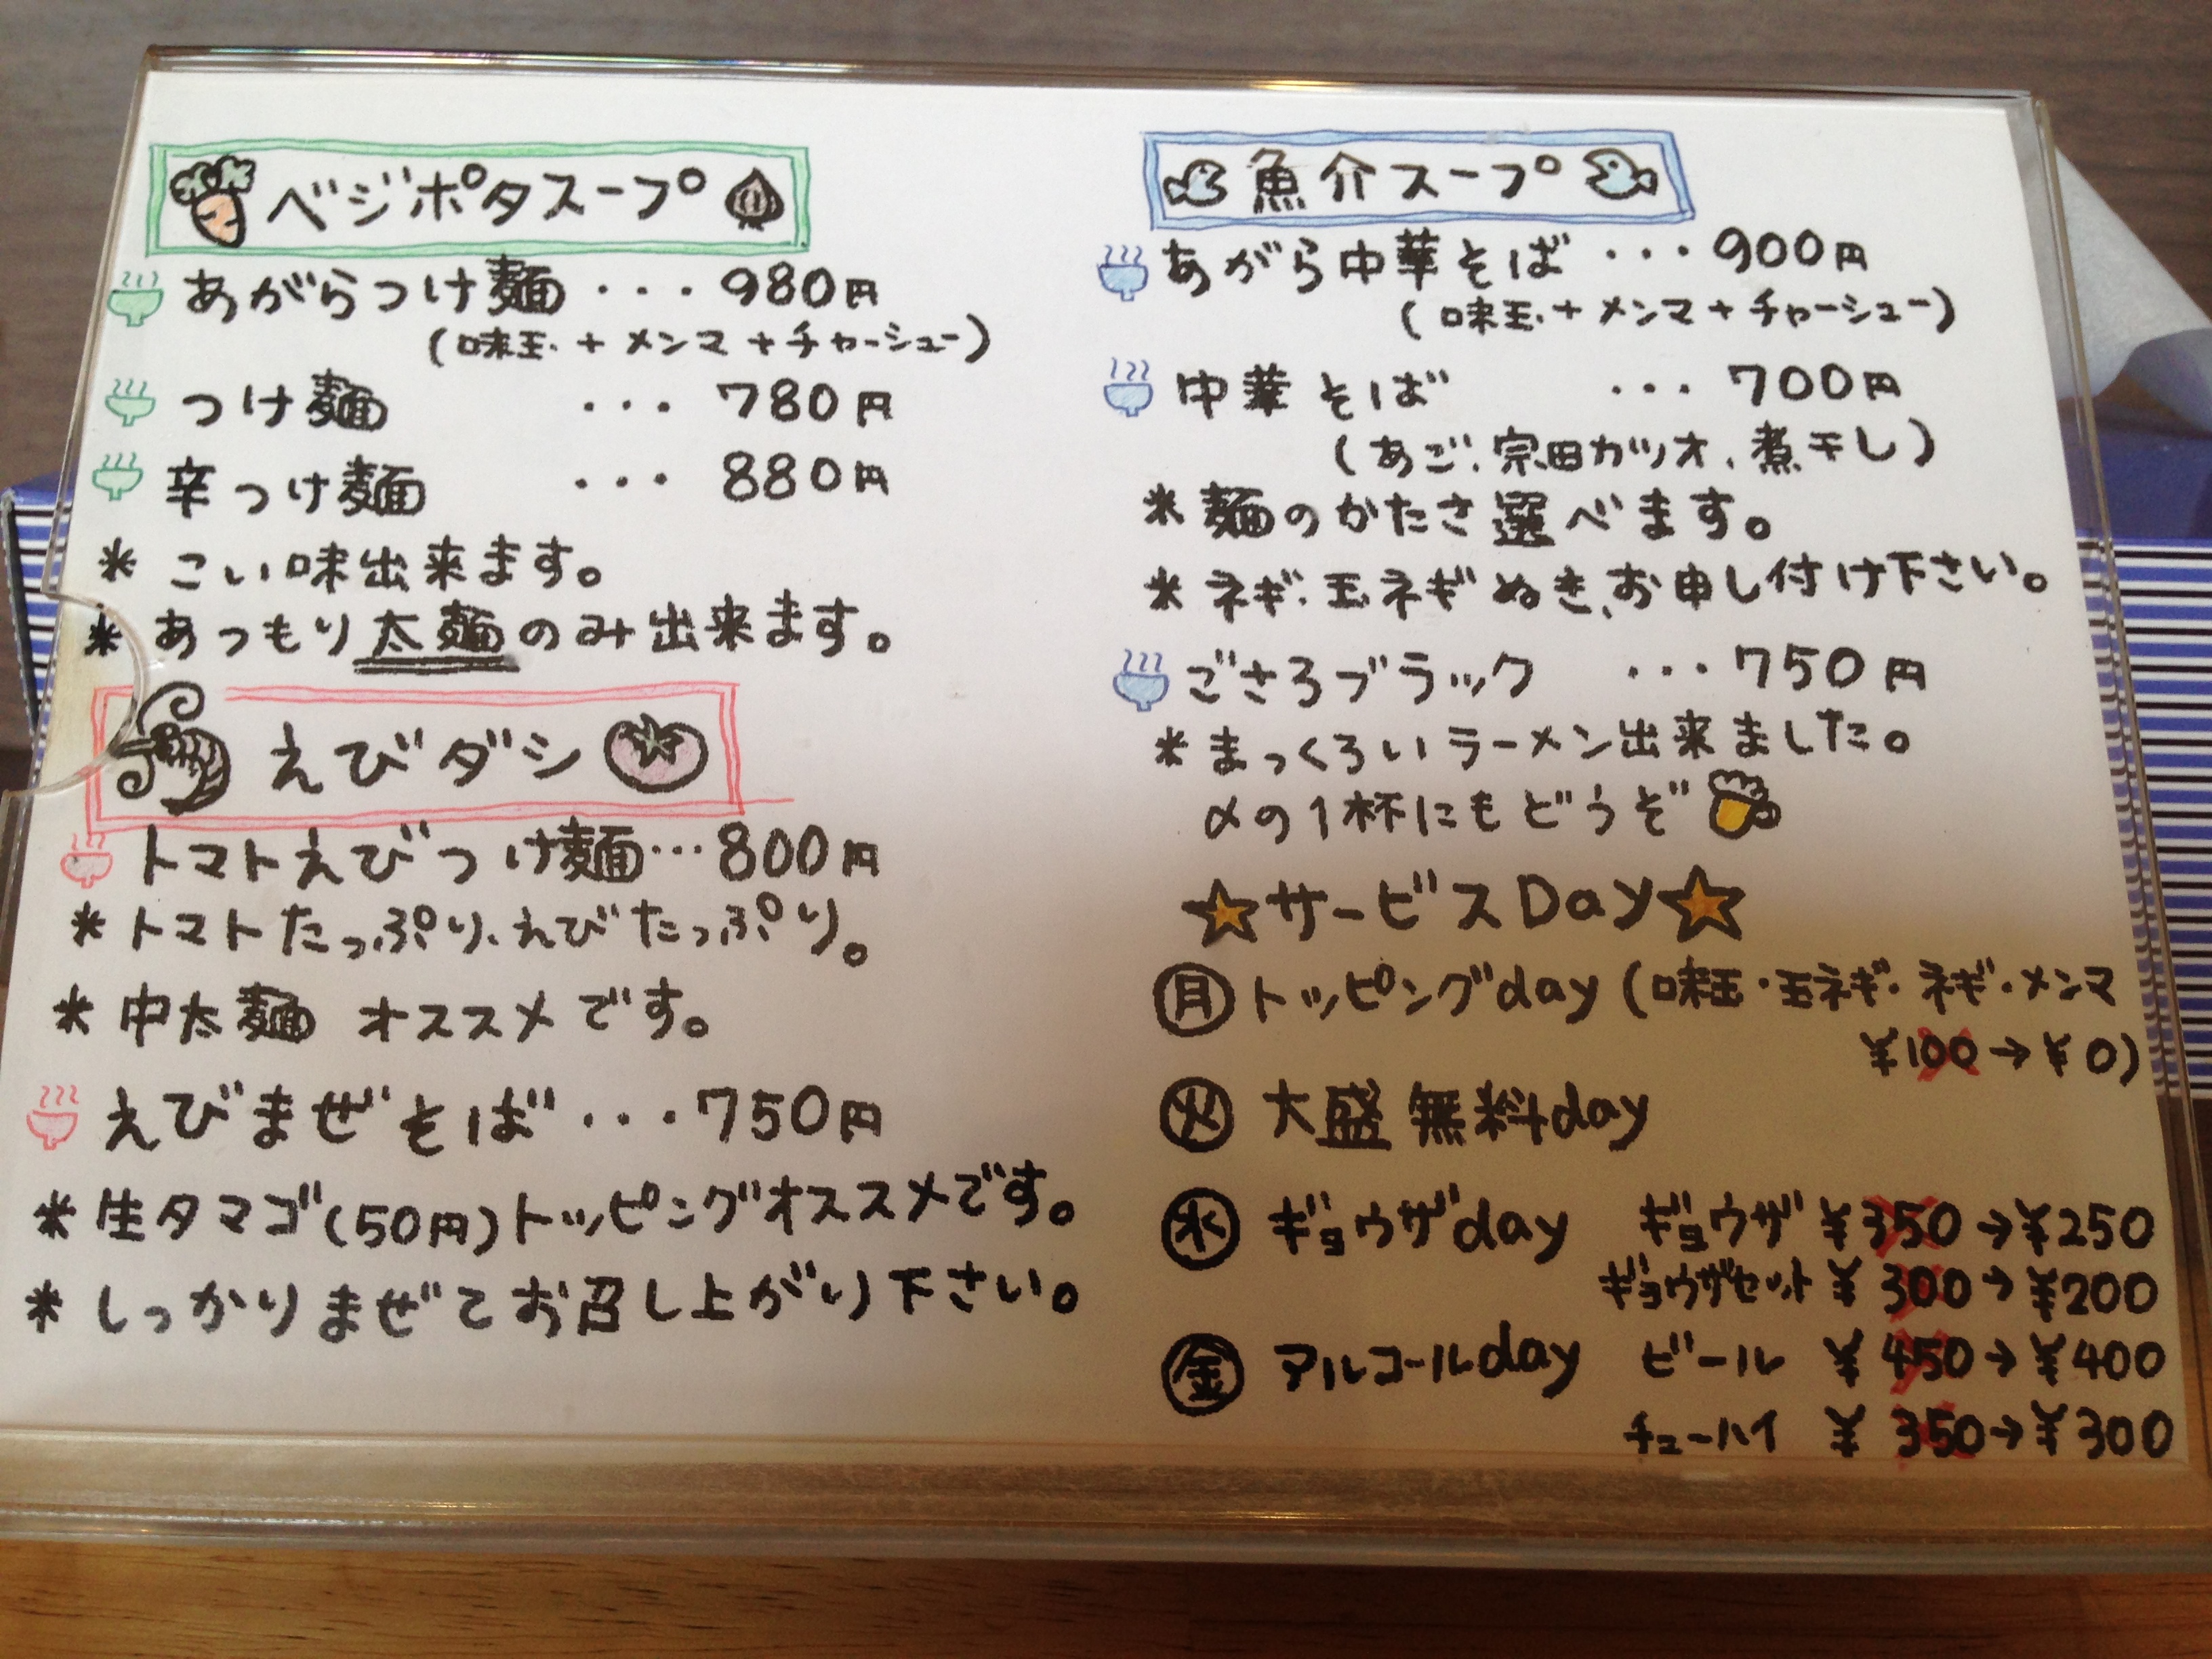 ベジポタスープ
あがらつけ麺・・・980円
(味玉+メンマ+チャーシュー)
つけ麺 ・・・780円
辛つけ麺 ・・・880円
* こい味出来ます。
* あつもり太麺のみ出来ます。
えびダシ
トマトえびつけ麺・・・800円
* トマトたっぷり、えびたっぷり。
* 中太麺 オススメです。
えびまぜそば・・・750円
* 生タマゴ(50円)トッピングオススメです。
* しっかりまぜてお召し上がり下さい。
魚介スープ
あがら中華そば・・・900円
(味玉+メンマ+チャーシュー)
中華そば ・・・700円
(あご、宗田カツオ、煮干し)
* 麺のかたさ選べます。
* ネギ・玉ネギぬき、お申し付け下さい。
ごさろブラック ・・・750円
* まっくろいラーメン出来ました。
〆の1杯にもどうぞ
☆サービスDay☆
㊊トッピングday(味玉・玉ネギ・ネギ・メンマ
¥100→¥0)
㊋ 大盛無料day
㊌ ギョウザday ギョウザ ¥350→¥250
ギョウザセット ¥300→¥200
㊎ アルコールday ビール ¥450→¥400
チューハイ ¥350→¥300